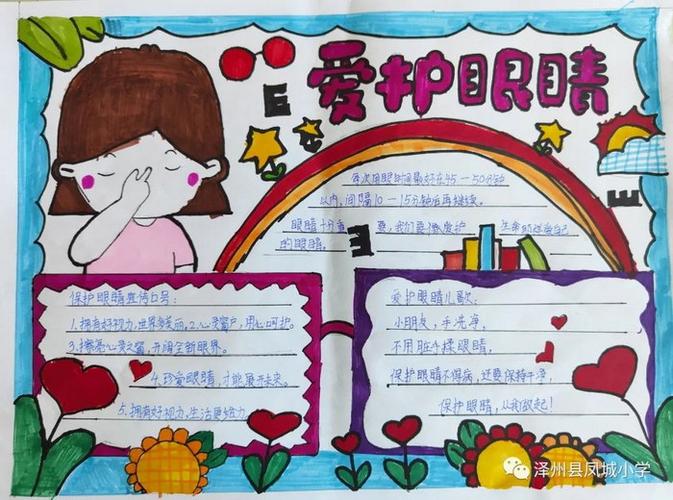 爱护眼睛
E
E
每次用眼时间最好在45-50分钟
以内,间隔10-15分钟后再继续。
眼睛十分重要,我们要像爱护生命那样爱自己
的眼睛。
E
保护眼睛宣传口号:
1.拥有好视力,世界多美丽,2.心灵窗户,用心呵护。
3.擦亮心灵之窗,开阔全新眼界。
4.珍爱眼睛,才能展开未来。
5.拥有好视力,生活更给力。
爱护眼睛儿歌:
小朋友,手洗净,
不用脏手揉眼睛,
保护眼睛不得病,还要保持干净,
保护眼睛,从我做起!
泽州县凤城小学